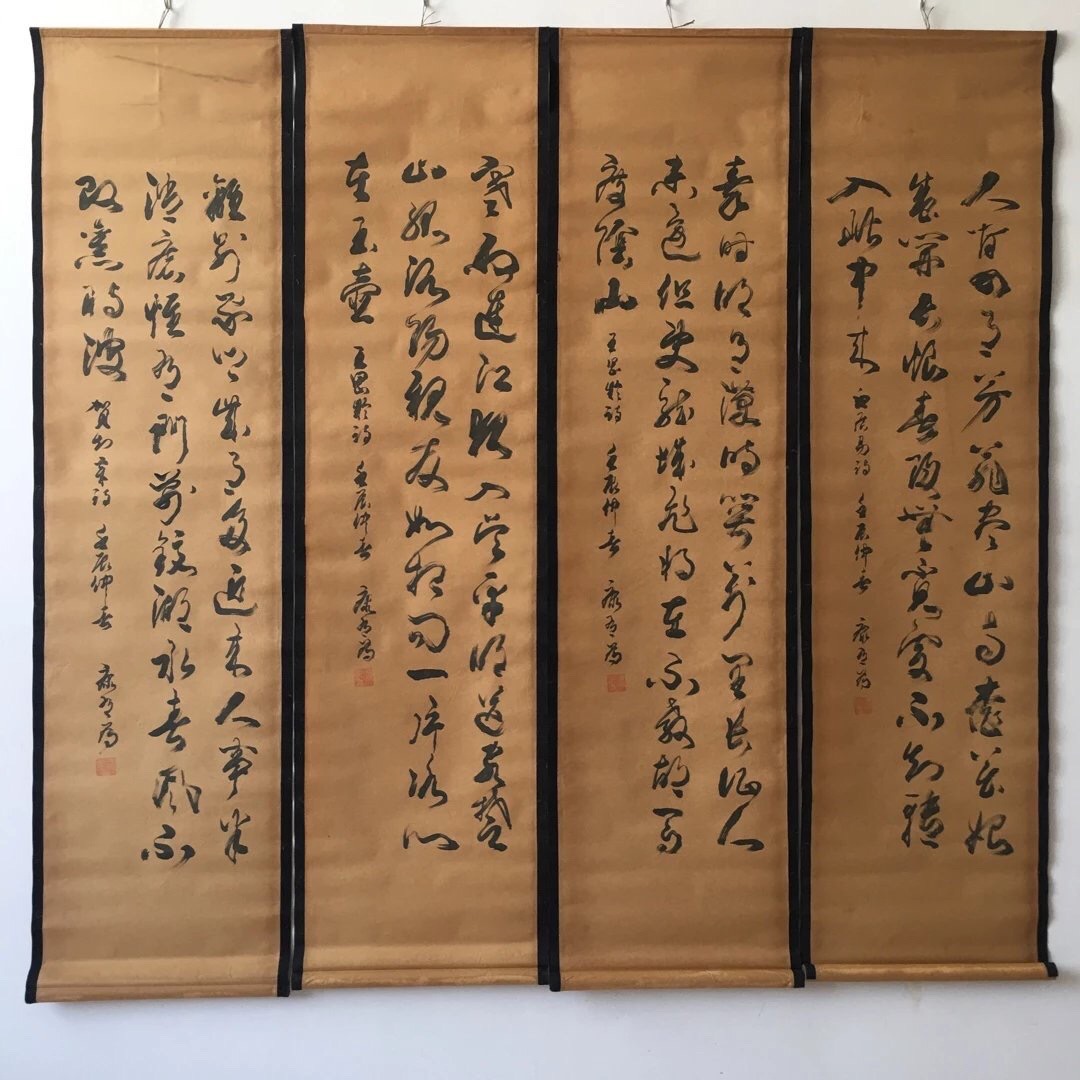 人間四月芳菲盡山寺桃花始
盛開長恨春歸無覓處不知轉
入此中來 白居易詩 壬辰仲春 康有為
秦時明月漢時關萬里長征人
未還但使龍城飛將在不教胡馬
度陰山 王昌齡詩 壬辰仲春 康有為
寒雨連江夜入吳平明送客楚
山孤洛陽親友如相問一片冰心
在玉壺 王昌齡詩 壬辰仲春 康有為
離別家鄉歲月多近來人事半
消磨惟有門前鏡湖水春風不
改舊時波 賀知章詩 壬辰仲春 康有為